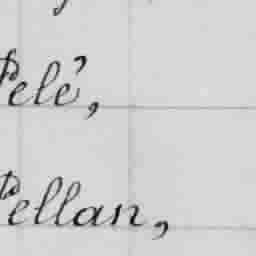 Pelé,
Pellan,